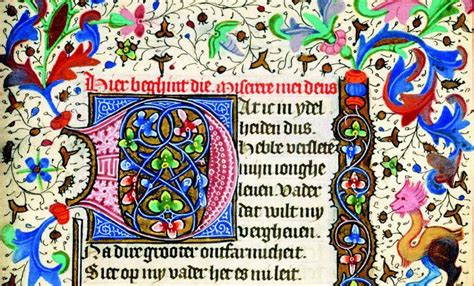 Hier beghint die Miserere mei deus
Dat ic in ydel
heiden dus.
Hebbe verslete
mijn ionghe
leuen Vader
dat wilt my
vergheuen.
Na dire grooter ontfarmicheit.
Siet op my vader het es mi leit.